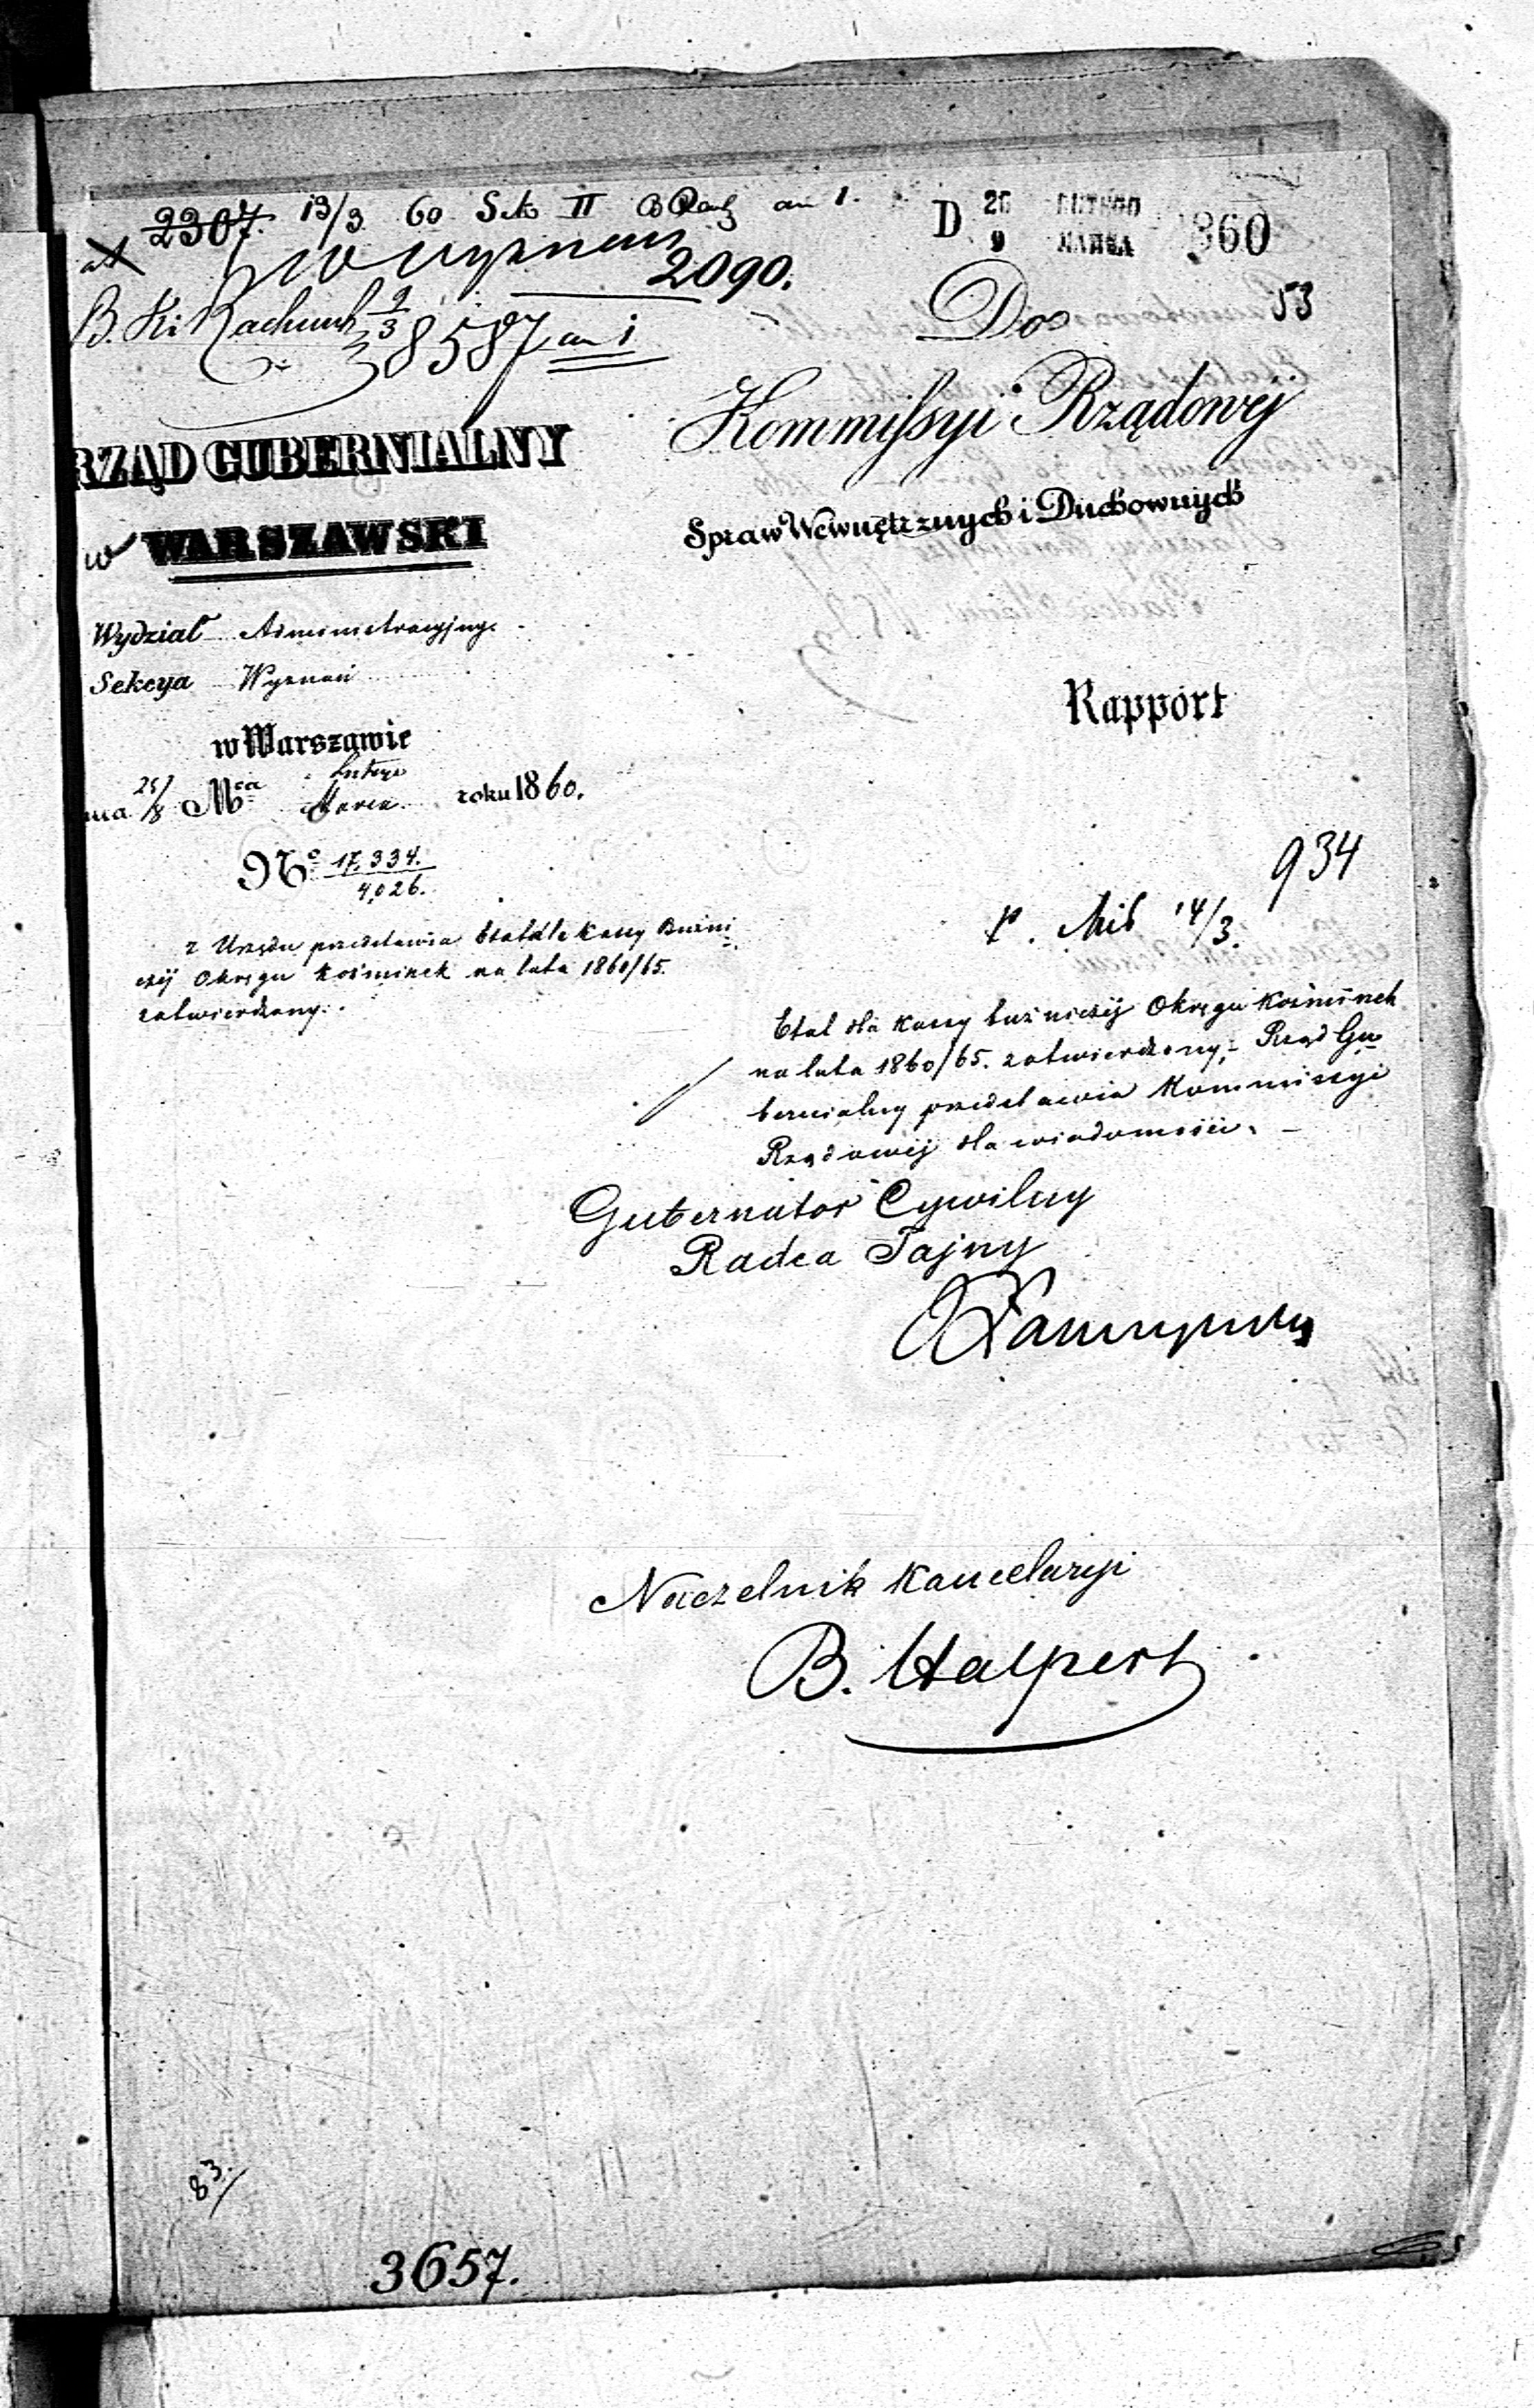 2307. 13/3 60 Sek II an 1.
2090.
B. Ki Rachunk 9/3
38587 an i
D 26 LUTEGO 9 MARCA 1860
53
Do
Kommissyi Rządowej
Spraw Wewnętrznych i Duchownych
RZĄD GUBERNIALNY
w WARSZAWSKI
Wydział Administracyjny.
Sekcya Wyznań
w Warszawie
nia 25/8 Mca Lutego Marca roku 1860.
No 17,334. / 4,026.
Rapport
934
14/3.
z Urzędu przedstawia Etat dla Kassy Bożni
czej Okręgu Koźminek na lata 1860/65.
zatwierdzony.
Etat dla Kassy bożniczej Okręgu Koźminek
na lata 1860/65. zatwierdzony, Rząd Gu
bernialny przedstawia Kommissyi
Rządowej dla wiadomości.
Gubernator Cywilny
Radca Tajny
Naczelnik Kancelaryi
B. Halpert
83.
3657.